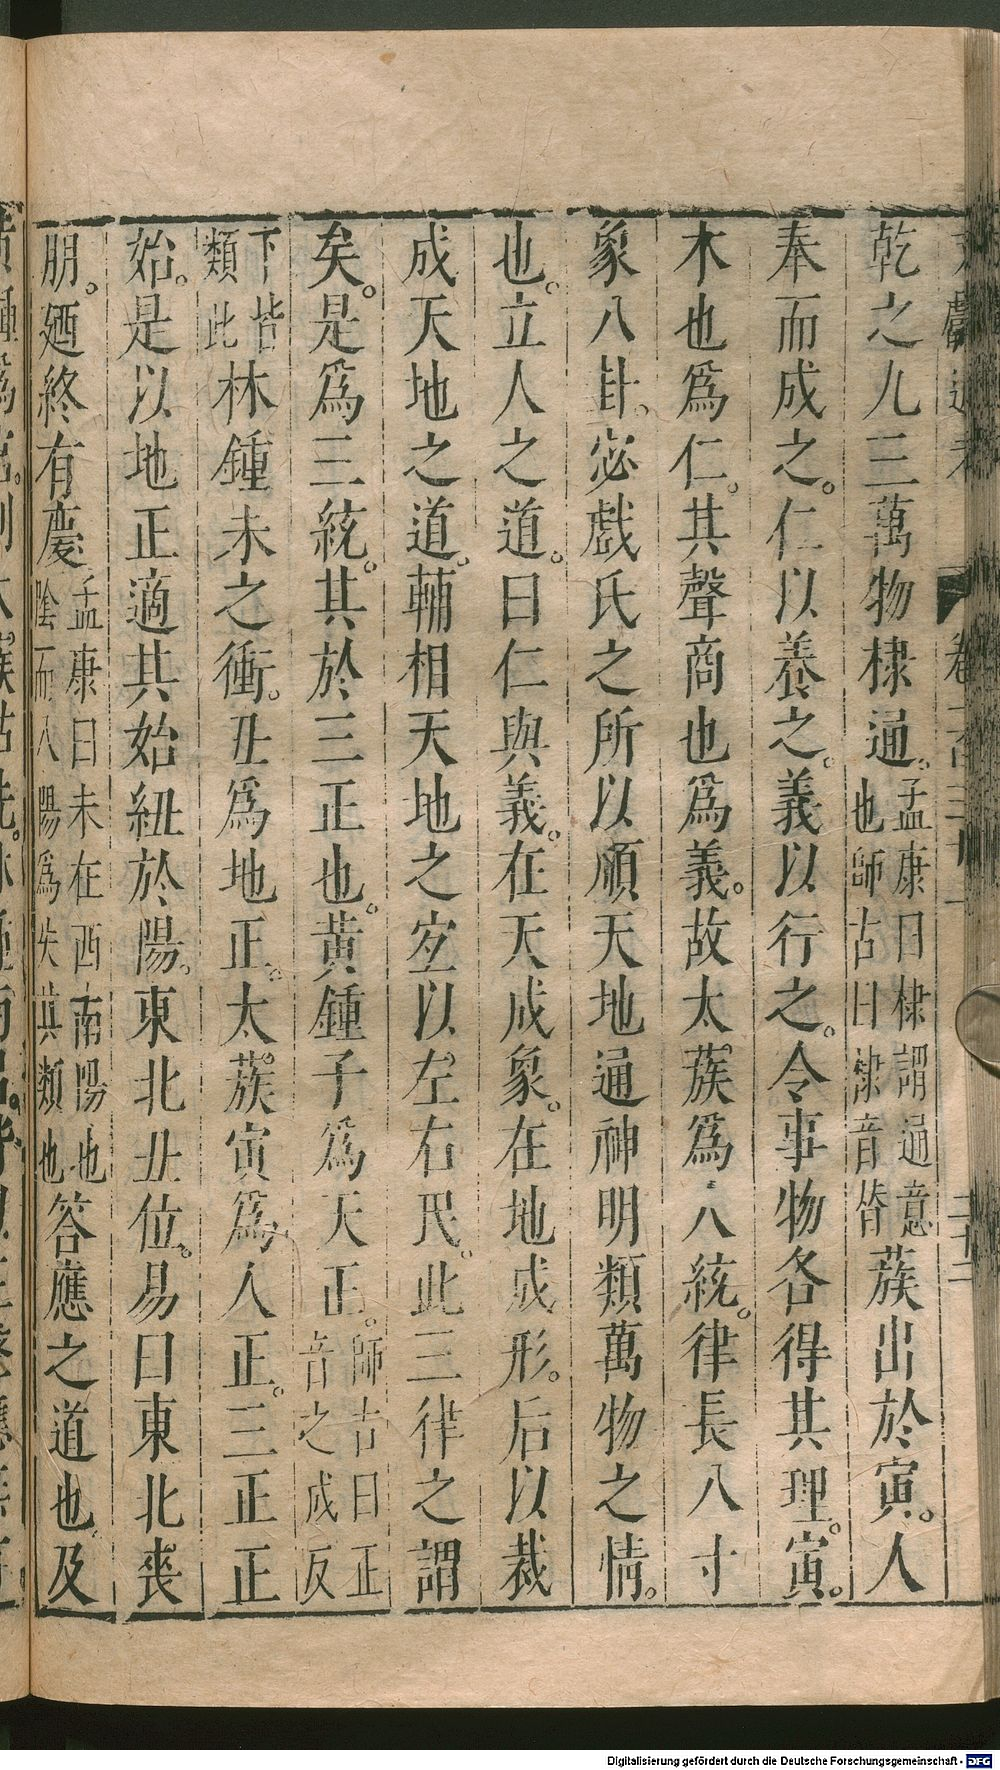 乾之九三萬物棣通。孟康曰棣謂通意也師古曰棣音替蔟出於寅。人
奉而成之。仁以養之。義以行之。令事物各得其理。寅。
木也爲仁。其聲商也爲義。故太蔟爲人統。律長八寸
象八卦。宓戲氏之所以順天地通神明類萬物之情。
也。立人之道。曰仁與義。在天成象。在地成形。后以裁
成天地之道。輔相天地之宐以左右民。此三律之謂
矣。是爲三統。其於三正也。黃鍾子爲天正。師古曰正音之成反
下皆類此林鍾未之衝。丑爲地正。太蔟寅爲人正。三正正
始。是以地正適其始紐於陽。東北丑位。易曰東北喪
朋。廼終有慶孟康曰未在西南陽也陰而入陽爲失其類也答應之道也。及
Digitalisierung gefördert durch die Deutsche Forschungsgemeinschaft - DFG